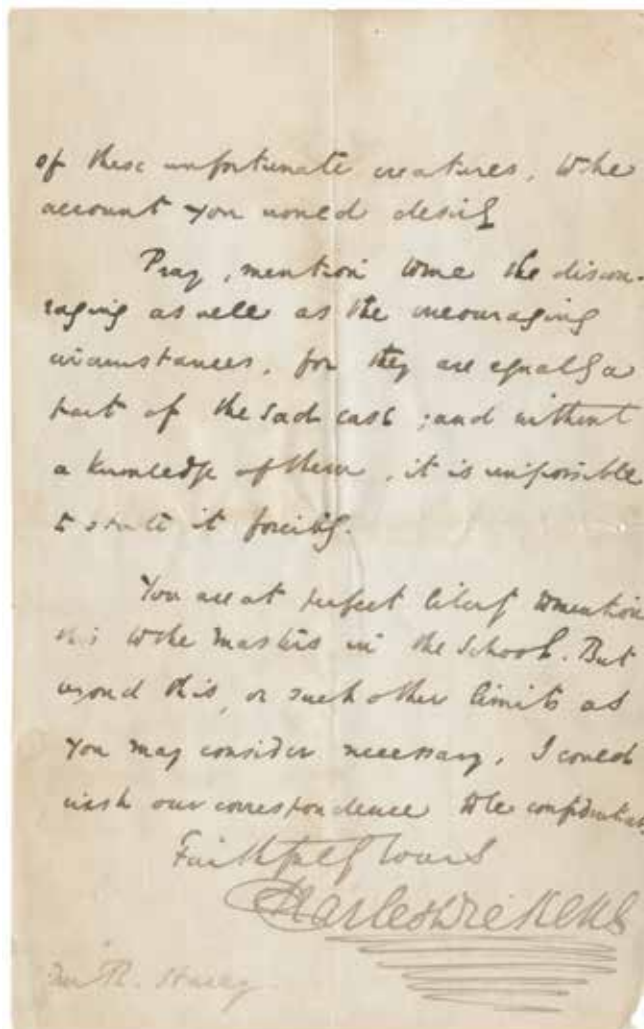 of these unfortunate creatures, to the
account you would desire
Pray, mention to me the discou-
raging as well as the encouraging
circumstances, for they are equally a
part of the sad case; and without
a knowledge of them, it is impossible
to state it forcibly.
You are at perfect liberty to mention
this to the masters in the School. But
beyond this, or such other limits as
you may consider necessary, I could
wish our correspondence to be confidential
Faithfully Yours
Charles Dickens